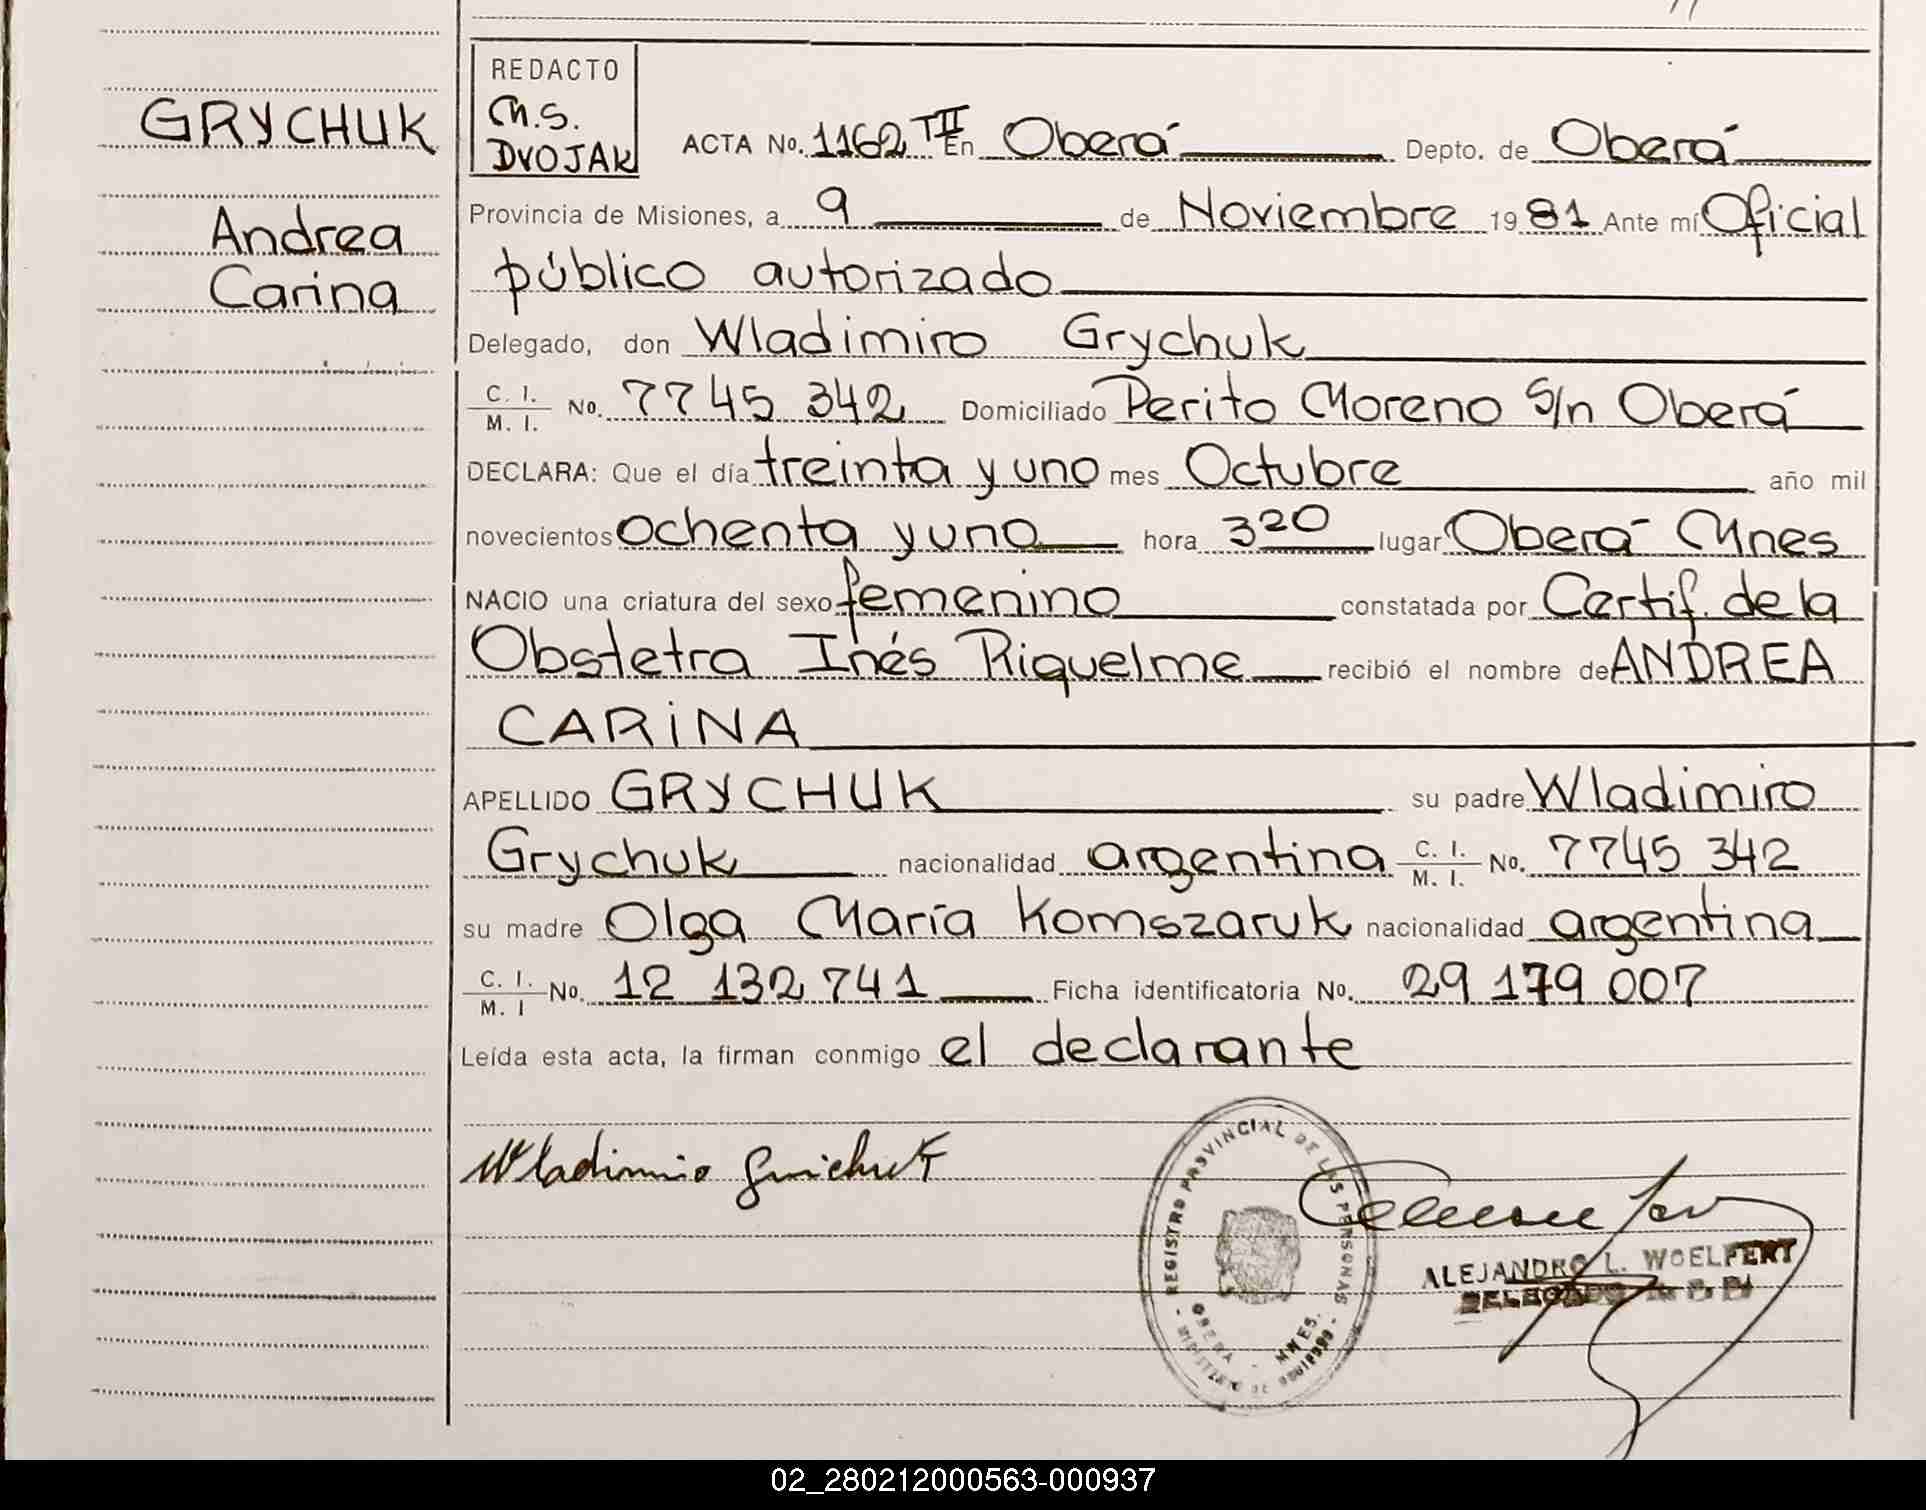 GRYCHUK
Andrea
Carina
REDACTO
M.S.
DVOJAK
ACTA No. 1162 TII En Oberá Depto. de Oberá
Provincia de Misiones, a 9 de Noviembre 1981 Ante mí Oficial
público autorizado
Delegado, don Wladimiro Grychuk
C. I.
M. I. No. 7745 342 Domiciliado Perito Moreno S/n Oberá
DECLARA: Que el día treinta y uno mes Octubre año mil
novecientos ochenta y uno hora 3 20 lugar Oberá Mnes
NACIO una criatura del sexo femenino constatada por Certif. de la
Obstetra Inés Riquelme recibió el nombre de ANDREA
CARINA
APELLIDO GRYCHUK su padre Wladimiro
Grychuk nacionalidad argentina C. I. M. I. No. 7745 342
su madre Olga María Komszaruk nacionalidad argentina
C. I.
M. I No. 12 132 741 Ficha identificatoria No. 29 179 007
Leída esta acta, la firman conmigo el declarante
Wladimiro
REGISTRO PROVINCIAL DE LAS PERSONAS
OBERA - MNES.
ALEJANDRO L. WOELFERT
DELEGADO
02_280212000563-000937